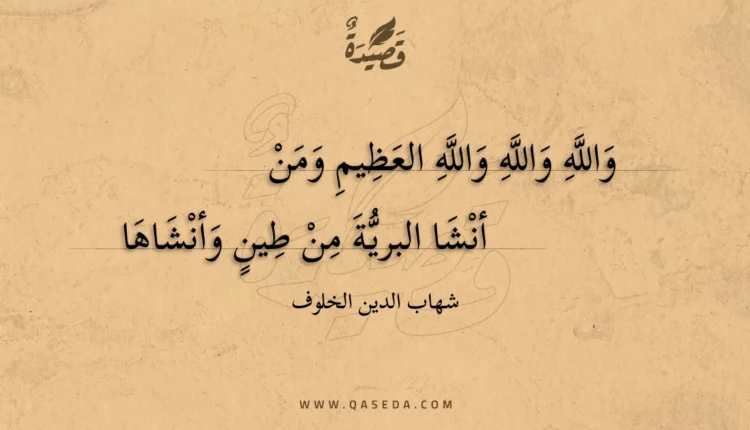 قَصِيْدَةٌ
وَاللَّهِ وَاللَّهِ وَاللَّهِ العَظِيمِ وَمَنْ
أنْشَا البريُّةَ مِنْ طِينٍ وَأنْشَاهَا
شهاب الدين الخلوف
WWW.QASEDA.COM